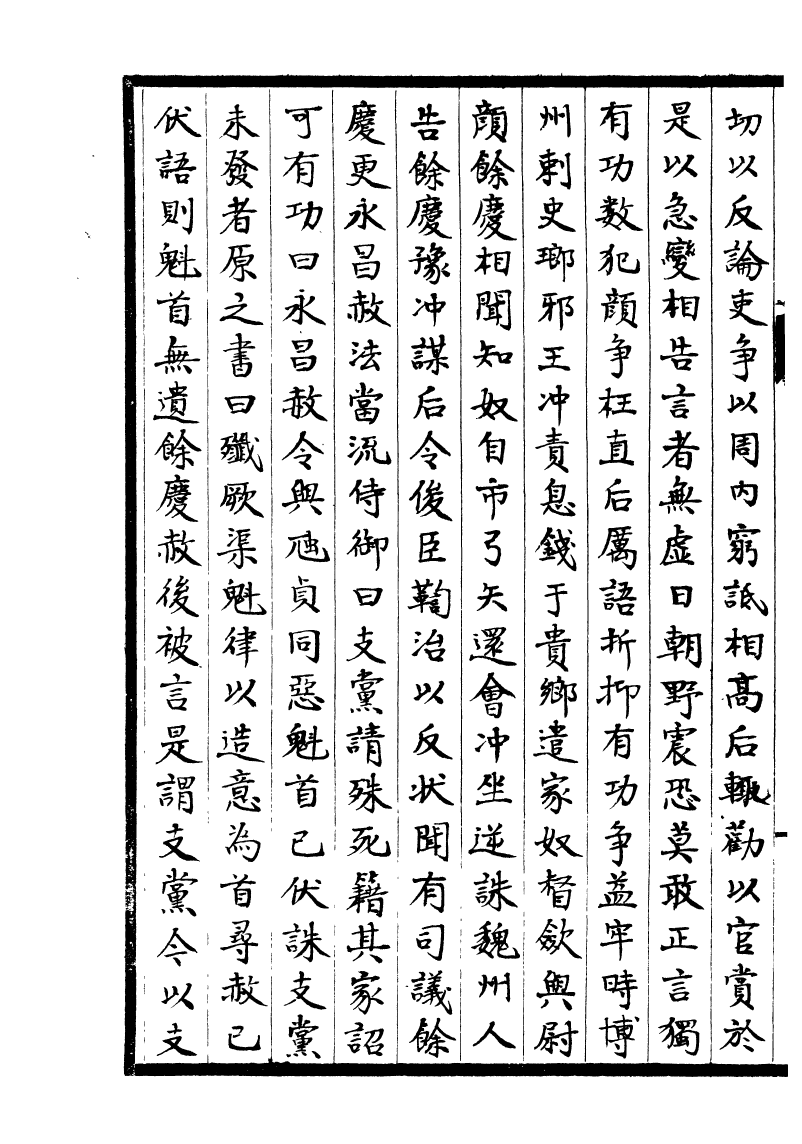 切以反論吏争以周內窮詆相高后輙勸以官賞於
是以急變相告言者無虚日朝野震恐莫敢正言獨
有功數犯顔争枉直后厲語折抑有功争益牢時博
州刺史瑯邪王冲責息錢于貴鄉遣家奴督斂與尉
顔餘慶相聞知奴自市弓矢還會冲坐逆誅魏州人
告餘慶豫冲謀后令俊臣鞫治以反状聞有司議餘
慶更永昌赦法當流侍御曰支黨請殊死籍其家詔
可有功曰永昌赦令與虺貞同惡魁首已伏誅支黨
未發者原之書曰殱厥渠魁律以造意為首尋赦已
伏語則魁首無遺餘慶赦後被言是謂支黨今以支